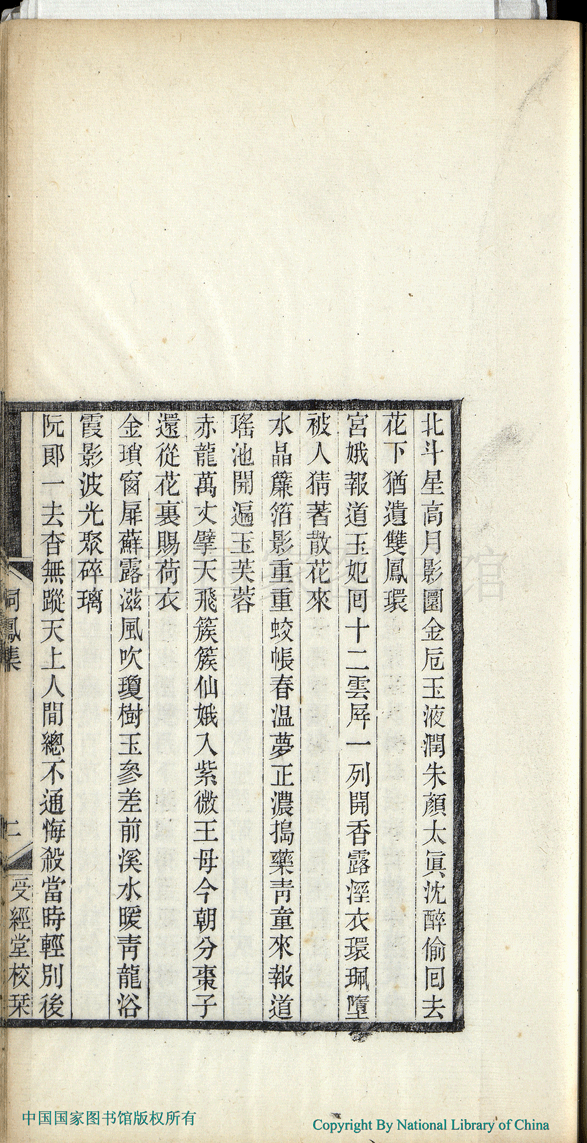 北斗星高月影圓金卮玉液潤朱顏太眞沈醉偷囘去
花下猶遺雙鳳環
宮娥報道玉妃囘十二雲屏一列開香露溼衣環珮墮
被人猜著散花來
水晶簾箔影重重蛟帳春溫夢正濃搗藥靑童來報道
瑤池開遍玉芙蓉
赤龍萬丈擘天飛簇簇仙娥入紫微王母今朝分棗子
還從花裏賜荷衣
金瑣窗扉蘚露滋風吹瓊樹玉參差前溪水暖靑龍浴
霞影波光聚碎璃
阮郞一去杳無蹤天上人間總不通悔殺當時輕別後
鳳集
二
受經堂校栞
中国国家图书馆版权所有
Copyright By National Library of China